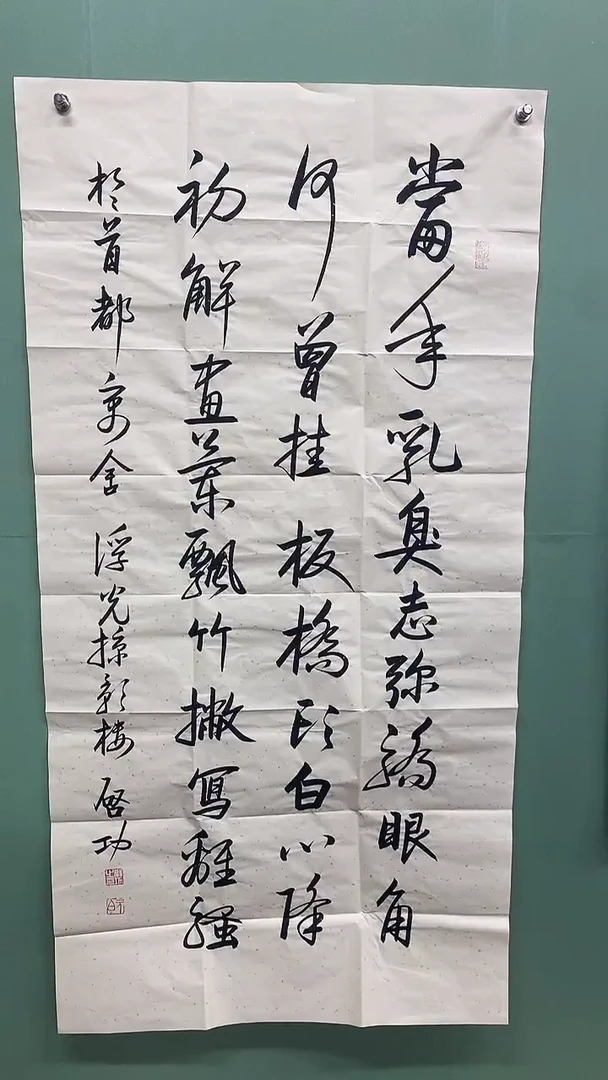 當年乳臭志弥驕眼角
何曾挂板橋頭白心降
初解畫蘭飄竹撇寫離騷
於首都寓舍浮光掠影樓啓功